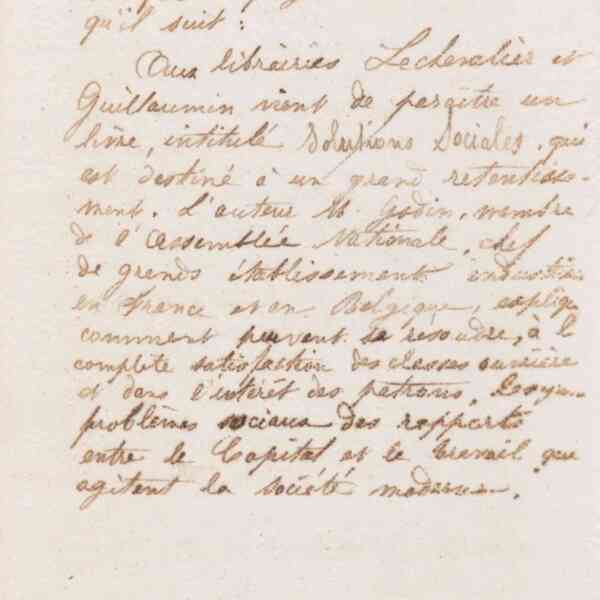 qu'il suit :
Aux librairies Lechevalier et
Guillaumin vient de paraître un
livre, intitulé Solutions Sociales, qui
est destiné à un grand retentisse-
ment. L'auteur M. Godin, membre
de l'Assemblée Nationale, chef
de grands établissements industriels
en France et en Belgique, explique
comment peuvent se résoudre, à l
complète satisfaction des classes ouvrière
et dans l'intérêt des patrons, les
problèmes sociaux des rapports
entre le Capital et le travail qui
agitent la société moderne.